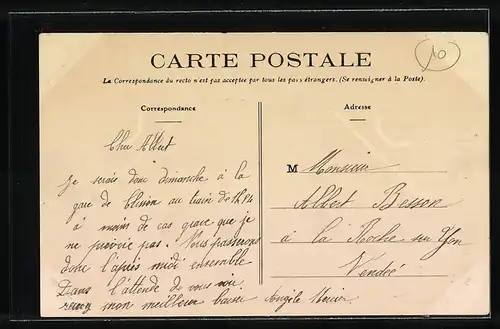 CARTE POSTALE
La Correspondance du recto n'est pas acceptée par tous les pays étrangers. (Se renseigner à la Poste).
Correspondance
Cher Albert
Je serais donc dimanche à la
gare de Clisson au train de
à moins de cas grave que je
ne prévoie pas. Nous passerons
donc l'après midi ensemble
Dans l'attende de vous voir
recevez mon meilleur baiser Angèle
Adresse
M Monsieur
Albert Besson
à la Roche sur Yon
Vendée
10